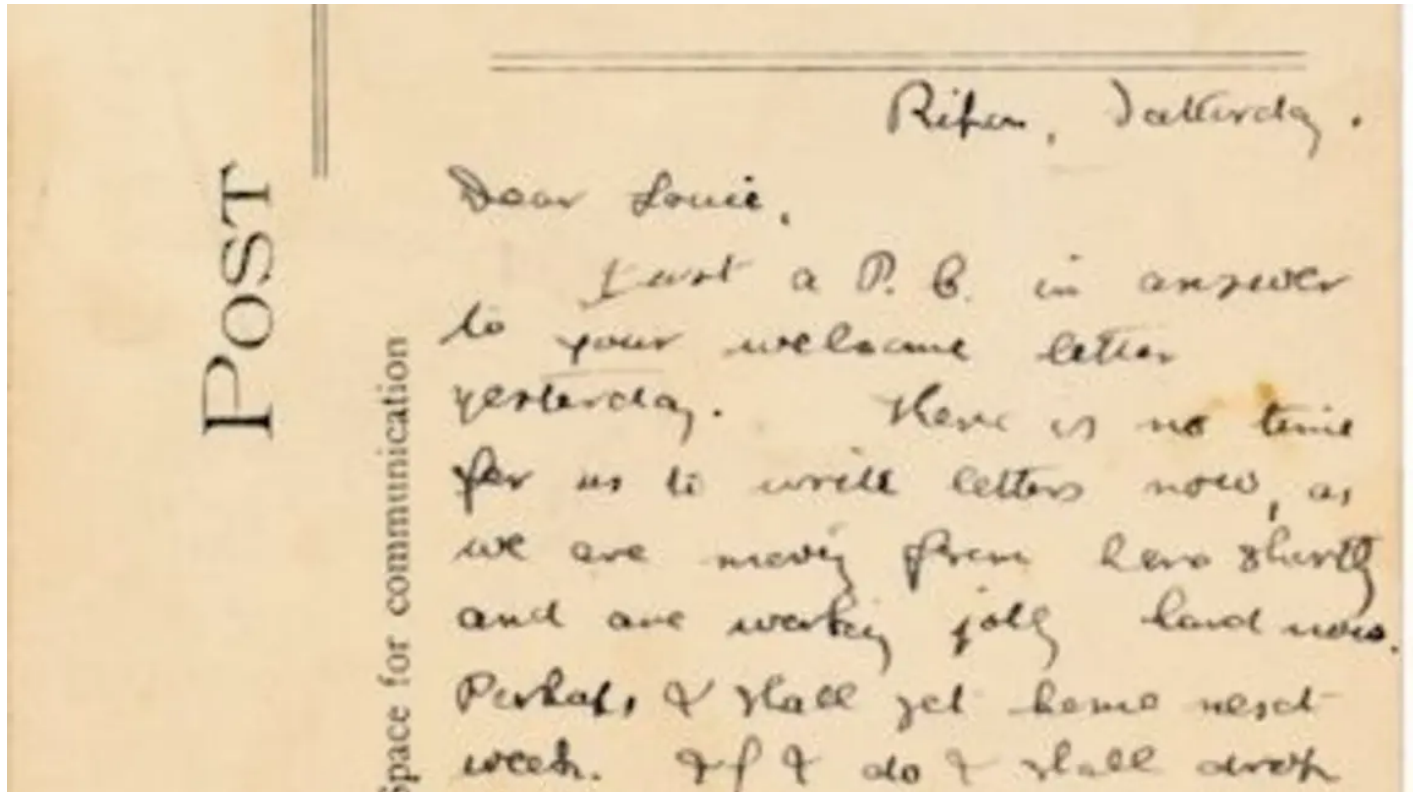 POST
Space for communication
Ripon, Satturday.
Dear Louie,
Just a P.C. in answer
to your welcome letter
yesterday. There is no time
for us to write letters now, as
we are moving from here shortly
and are working jolly hard now.
Perhaps I shall get home next
week. If I do I shall drop